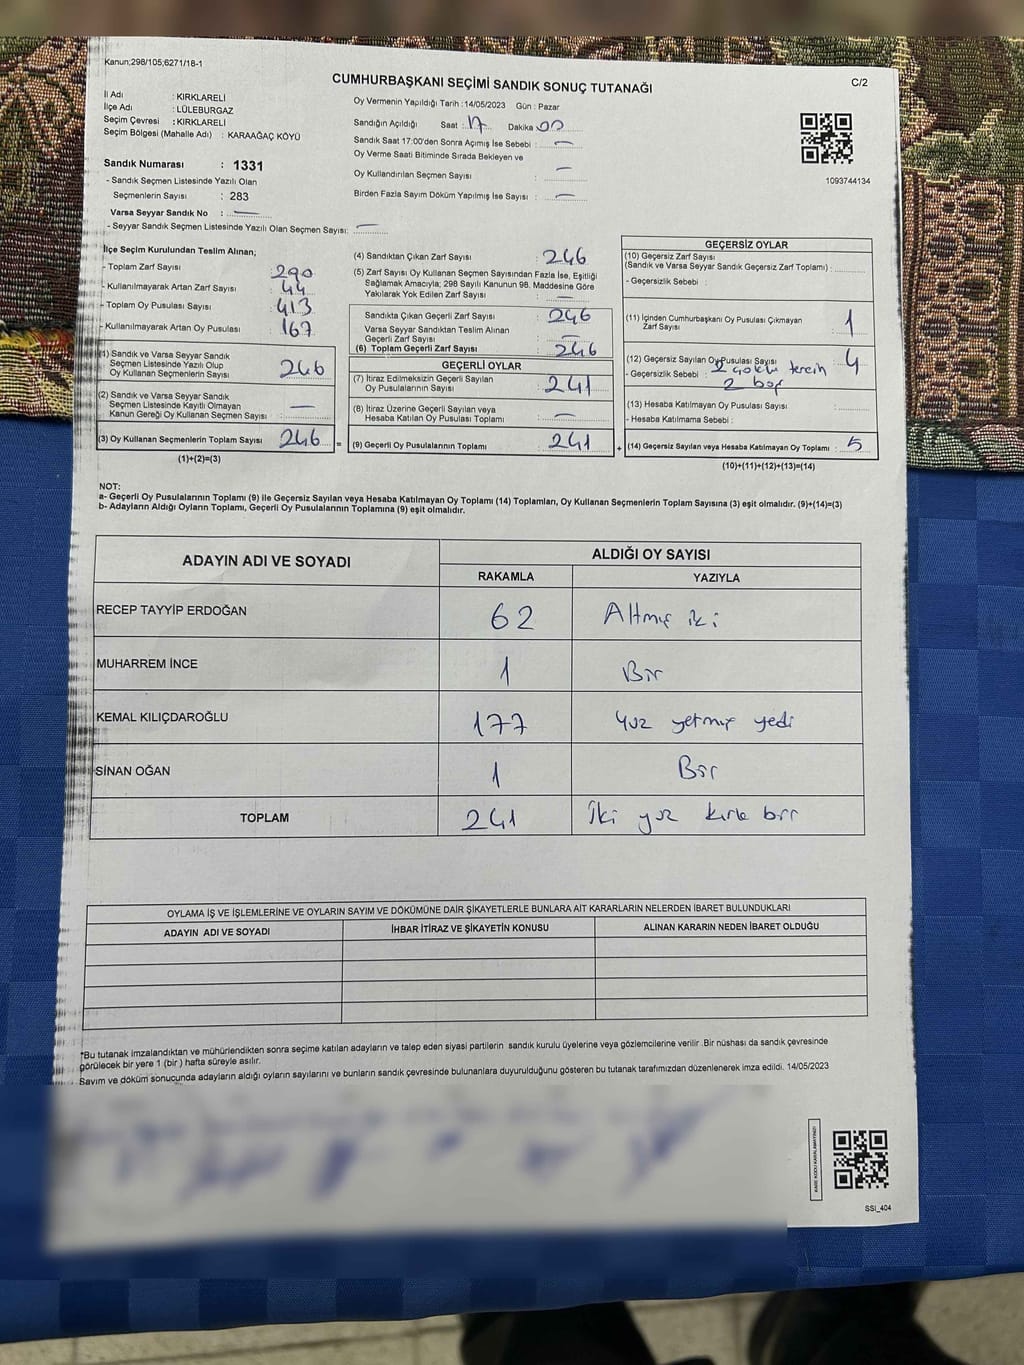 Kanun;298/105,6271/18-1
CUMHURBAŞKANI SEÇİMİ SANDIK SONUÇ TUTANAĞI
C/2
İl Adı : KIRKLARELİ
İlçe Adı : LÜLEBURGAZ
Seçim Çevresi : KIRKLARELİ
Seçim Bölgesi (Mahalle Adı) : KARAAĞAÇ KÖYÜ
Sandık Numarası : 1331
- Sandık Seçmen Listesinde Yazılı Olan
Seçmenlerin Sayısı : 283
Varsa Seyyar Sandık No : —
- Seyyar Sandık Seçmen Listesinde Yazılı Olan Seçmen Sayısı: —
Oy Vermenin Yapıldığı Tarih :14/05/2023 Gün : Pazar
Sandığın Açıldığı Saat : 17 Dakika 00
Sandık Saat 17:00'den Sonra Açımış İse Sebebi : —
Oy Verme Saati Bitiminde Sırada Bekleyen ve
Oy Kullandırılan Seçmen Sayısı : —
Birden Fazla Sayım Döküm Yapılmış İse Sayısı : —
1093744134
İlçe Seçim Kurulundan Teslim Alınan;
- Toplam Zarf Sayısı 290
- Kullanılmayarak Artan Zarf Sayısı : 44
- Toplam Oy Pusulası Sayısı : 413
- Kullanılmayarak Artan Oy Pusulası : 167
(1) Sandık ve Varsa Seyyar Sandık
Seçmen Listesinde Yazılı Olup
Oy Kullanan Seçmenlerin Sayısı : 246
(2) Sandık ve Varsa Seyyar Sandık
Seçmen Listesinde Kayıtlı Olmayan
Kanun Gereği Oy Kullanan Seçmen Sayısı : —
(3) Oy Kullanan Seçmenlerin Toplam Sayısı : 246 =
(1)+(2)=(3)
(4) Sandıktan Çıkan Zarf Sayısı : 246
(5) Zarf Sayısı Oy Kullanan Seçmen Sayısından Fazla İse, Eşitliği
Sağlamak Amacıyla; 298 Sayılı Kanunun 98. Maddesine Göre
Yakılarak Yok Edilen Zarf Sayısı : —
Sandıkta Çıkan Geçerli Zarf Sayısı : 246
Varsa Seyyar Sandıktan Teslim Alınan
Geçerli Zarf Sayısı : —
(6) Toplam Geçerli Zarf Sayısı : 246
GEÇERLİ OYLAR
(7) İtiraz Edilmeksizin Geçerli Sayılan
Oy Pusulalarının Sayısı : 241
(8) İtiraz Üzerine Geçerli Sayılan veya
Hesaba Katılan Oy Pusulası Toplamı : —
(9) Geçerli Oy Pusulalarının Toplamı : 241 +
GEÇERSİZ OYLAR
(10) Geçersiz Zarf Sayısı
(Sandık ve Varsa Seyyar Sandık Geçersiz Zarf Toplamı) :
- Geçersizlik Sebebi :
(11) İçinden Cumhurbaşkanı Oy Pusulası Çıkmayan
Zarf Sayısı : 1
(12) Geçersiz Sayılan Oy Pusulası Sayısı : 4
- Geçersizlik Sebebi : 2 çoklu tercih
2 boş
(13) Hesaba Katılmayan Oy Pusulası Sayısı :
- Hesaba Katılmama Sebebi :
(14) Geçersiz Sayılan veya Hesaba Katılmayan Oy Toplamı : 5
(10)+(11)+(12)+(13)=(14)
NOT:
a- Geçerli Oy Pusulalarının Toplamı (9) ile Geçersiz Sayılan veya Hesaba Katılmayan Oy Toplamı (14) Toplamları, Oy Kullanan Seçmenlerin Toplam Sayısına (3) eşit olmalıdır. (9)+(14)=(3)
b- Adayların Aldığı Oyların Toplamı, Geçerli Oy Pusulalarının Toplamına (9) eşit olmalıdır.
ADAYIN ADI VE SOYADI
ALDIĞI OY SAYISI
RAKAMLA YAZIYLA
RECEP TAYYİP ERDOĞAN 62 Altmış iki
MUHARREM İNCE 1 Bir
KEMAL KILIÇDAROĞLU 177 Yuz yetmiş yedi
SİNAN OĞAN 1 Bir
TOPLAM 241 İki yuz kırk bir
OYLAMA İŞ VE İŞLEMLERİNE VE OYLARIN SAYIM VE DÖKÜMÜNE DAİR ŞİKAYETLERLE BUNLARA AİT KARARLARIN NELERDEN İBARET BULUNDUKLARI
ADAYIN ADI VE SOYADI
İHBAR İTİRAZ VE ŞİKAYETİN KONUSU
ALINAN KARARIN NEDEN İBARET OLDUĞU
*Bu tutanak imzalandıktan ve mühürlendikten sonra seçime katılan adayların ve talep eden siyasi partilerin sandık kurulu üyelerine veya gözlemcilerine verilir .Bir nüshası da sandık çevresinde
görülecek bir yere 1 (bir ) hafta süreyle asılır.
Sayım ve döküm sonucunda adayların aldığı oyların sayılarını ve bunların sandık çevresinde bulunanlara duyurulduğunu gösteren bu tutanak tarafımızdan düzenlenerek imza edildi. 14/05/2023
KARE KODU KARALAMAYINIZ!
SSI_404